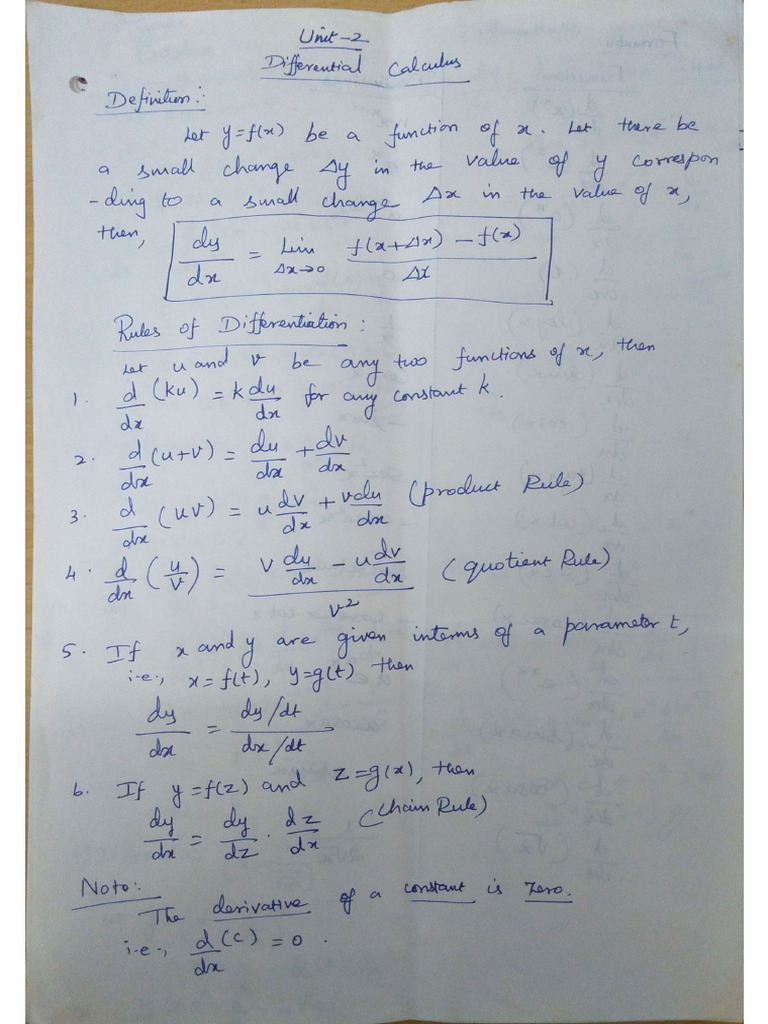 Unit-2
Differential Calculus
Definition:
Let y=f(x) be a function of x. Let there be
a small change Δy in the value of y correspon
-ding to a small change Δx in the value of x,
then, dy/dx = Lim Δx→0 f(x+Δx) - f(x) / Δx
Rules of Differentiation:
Let u and v be any two functions of x, then
1. d/dx (ku) = k du/dx for any constant k.
2. d/dx (u+v) = du/dx + dv/dx
3. d/dx (uv) = u dv/dx + v du/dx (product Rule)
4. d/dx (u/v) = v du/dx - u dv/dx / v² (quotient Rule)
5. If x and y are given interms of a parameter t,
i.e., x=f(t), y=g(t) then
dy/dx = dy/dt / dx/dt
6. If y=f(z) and z=g(x), then
dy/dx = dy/dz . dz/dx (Chain Rule)
Note:
The derivative of a constant is zero.
i.e., d/dx (c) = 0.